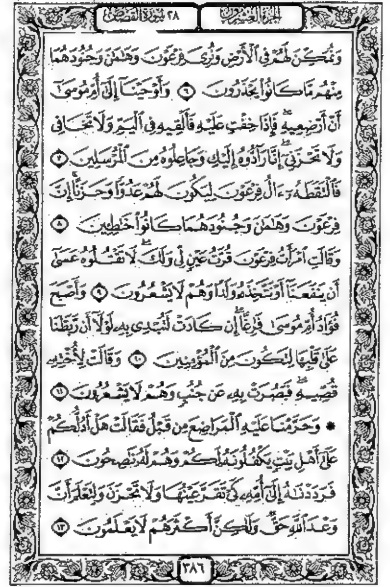 الجزء العشرون ٢٨ سورة القصص
وَنُمَكِّنَ لَهُمْ فِى ٱلْأَرْضِ وَنُرِىَ فِرْعَوْنَ وَهَٰمَٰنَ وَجُنُودَهُمَا
مِنْهُم مَّا كَانُوا۟ يَحْذَرُونَ ٦ وَأَوْحَيْنَآ إِلَىٰٓ أُمِّ مُوسَىٰٓ
أَنْ أَرْضِعِيهِ ۖ فَإِذَا خِفْتِ عَلَيْهِ فَأَلْقِيهِ فِى ٱلْيَمِّ وَلَا تَخَافِى
وَلَا تَحْزَنِىٓ ۖ إِنَّا رَآدُّوهُ إِلَيْكِ وَجَاعِلُوهُ مِنَ ٱلْمُرْسَلِينَ ٧
فَٱلْتَقَطَهُۥٓ ءَالُ فِرْعَوْنَ لِيَكُونَ لَهُمْ عَدُوًّا وَحَزَنًا ۗ إِنَّ
فِرْعَوْنَ وَهَٰمَٰنَ وَجُنُودَهُمَا كَانُوا۟ خَٰطِـِٔينَ ٨
وَقَالَتِ ٱمْرَأَتُ فِرْعَوْنَ قُرَّتُ عَيْنٍ لِّى وَلَكَ ۖ لَا تَقْتُلُوهُ عَسَىٰٓ
أَن يَنفَعَنَآ أَوْ نَتَّخِذَهُۥ وَلَدًا وَهُمْ لَا يَشْعُرُونَ ٩ وَأَصْبَحَ
فُؤَادُ أُمِّ مُوسَىٰ فَٰرِغًا ۖ إِن كَادَتْ لَتُبْدِى بِهِۦ لَوْلَآ أَن رَّبَطْنَا
عَلَىٰ قَلْبِهَا لِتَكُونَ مِنَ ٱلْمُؤْمِنِينَ ١٠ وَقَالَتْ لِأُخْتِهِۦ
قُصِّيهِ ۖ فَبَصُرَتْ بِهِۦ عَن جُنُبٍ وَهُمْ لَا يَشْعُرُونَ ١١
۞ وَحَرَّمْنَا عَلَيْهِ ٱلْمَرَاضِعَ مِن قَبْلُ فَقَالَتْ هَلْ أَدُلُّكُمْ
عَلَىٰٓ أَهْلِ بَيْتٍ يَكْفُلُونَهُۥ لَكُمْ وَهُمْ لَهُۥ نَٰصِحُونَ ١٢
فَرَدَدْنَٰهُ إِلَىٰٓ أُمِّهِۦ كَىْ تَقَرَّ عَيْنُهَا وَلَا تَحْزَنَ وَلِتَعْلَمَ أَنَّ
وَعْدَ ٱللَّهِ حَقٌّ وَلَٰكِنَّ أَكْثَرَهُمْ لَا يَعْلَمُونَ ١٣
٣٨٦